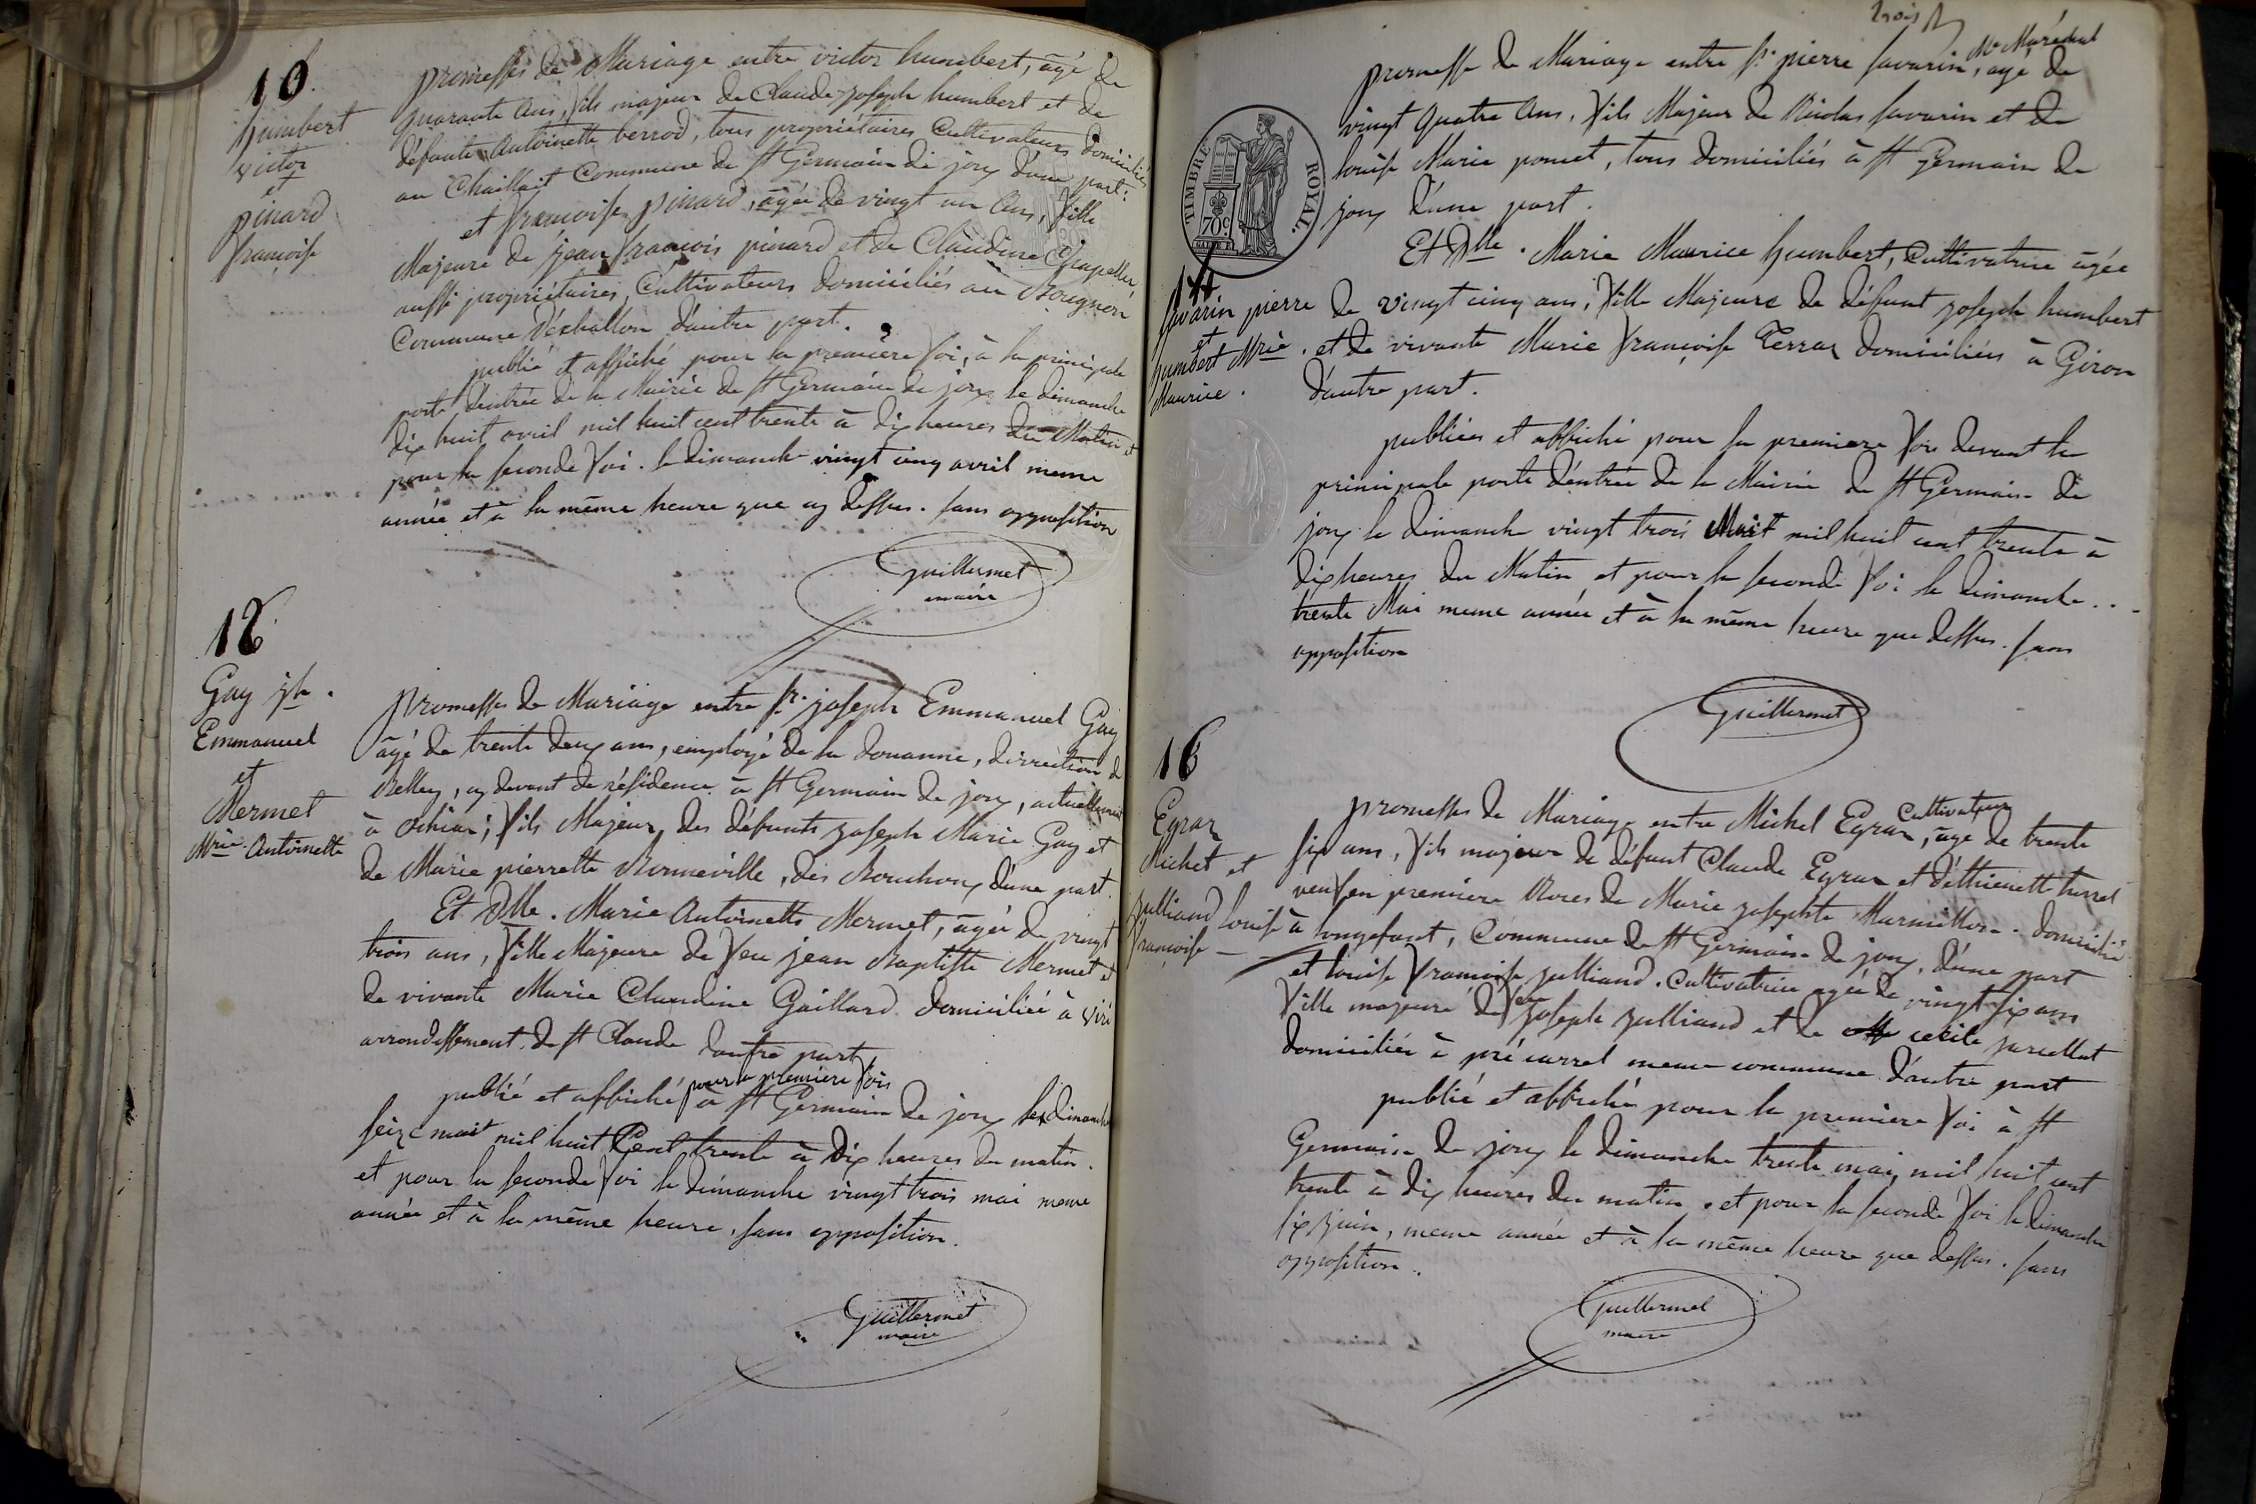 10
humbert
victor
et
pinard
françoise
promesses de Mariage entre victor humbert, âgé de
quarante ans, fils majeur de Claude joseph humbert et de
défunte Antoinette berrod, tous propriétaires Cultivateurs domiciliés
au Chaillait Commune de St Germain de joux d'une part.
et françoise pinard, âgée de vingt un ans, fille
Majeure de jean françois pinard et de Claudine Chapellu
aussi propriétaires Cultivateurs domiciliés au Rougnon
Commune d'échallon d'autre part.
publié et affiché pour la première foi, à la principale
porte d'entrée de la Mairie de St Germain de joux le dimanche
dix huit avril mil huit cent trente à dix heures du Matin et
pour la seconde foi le dimanche vingt cinq avril meme
année et à la même heure que cy dessus. sans opposition
Guillermet
maire
12
Gay jph.
Emmanuel
et
Mermet
Mrie Antoinette
promesses de Mariage entre Sr. joseph Emmanuel Gay
âgé de trente deux ans, employé de la douanne, dirrection de
Belley, cy devant de résidence à St Germain de joux, actuellement
à ochiaz; fils Majeur des défunts joseph Marie Gay et
de Marie pierrette Bonneville, des Bouchoux d'une part.
Et Dlle. Marie Antoinette Mermet, âgée de vingt
trois ans, fille Majeure de feu jean Baptiste Mermet et
de vivante Marie Claudine Gaillard domiciliée à Viri
arrondissement de St Claude d'autre part
pour la premiere fois
publié et affiché à St Germain de joux le dimanche
seize mait mil huit Cent trente à dix heures du matin.
et pour la seconde foi le dimanche vingt trois mai meme
année et à la même heure, sans opposition.
Guillermet
maire
trois
TIMBRE ROYAL
70c
Me Maréchal
promesse de Mariage entre Sr. pierre savarin, agé de
vingt quatre ans, fils Majeur de Nicolas savarin et de
louise Marie poncet, tous domiciliés à St Germain de
joux d'une part.
Et Dlle. Marie Maurice humbert, Cultivatrice âgée
14
savarin pierre
et
humbert Mrie
Maurice.
de vingt cinq ans, fille Majeure de défunt joseph humbert
et de vivante Marie françoise Terraz domiciliées à Giron
d'autre part.
publiées et affiché pour la premiere fois devant la
principale porte d'entrée de la Mairie de St Germain de
joux le dimanche vingt trois Mait mil huit cent trente à
dix heures du Matin et pour la seconde foi le dimanche...
trente Mai meme année et à la même heure que dessus. sans
opposition
Guillermet
16
Egraz
Michel et
julliand louise
françoise
Cultivateur
promesses de Mariage entre Michel Egraz, âge de trente
six ans, fils majeur de défunt Claude Egraz et d'éthienette turrel
veuf en premiere Noces de Marie josephte Marmillon. domicilié
à longefant, Commune de St Germain de joux, d'une part
et louise françoise julliand. Cultivatrice agée de vingt six ans
fille majeure de feu joseph julliand et de cécile
domiciliée à pré carrel meme commune d'autre part
publié et affiché pour la premiere foi à St
Germain de joux le dimanche trente mai, mil huit cent
trente à dix heures du matin. et pour la seconde foi le dimanche
six juin, meme année et à la même heure que dessus. sans
opposition.
Guillermet
maire